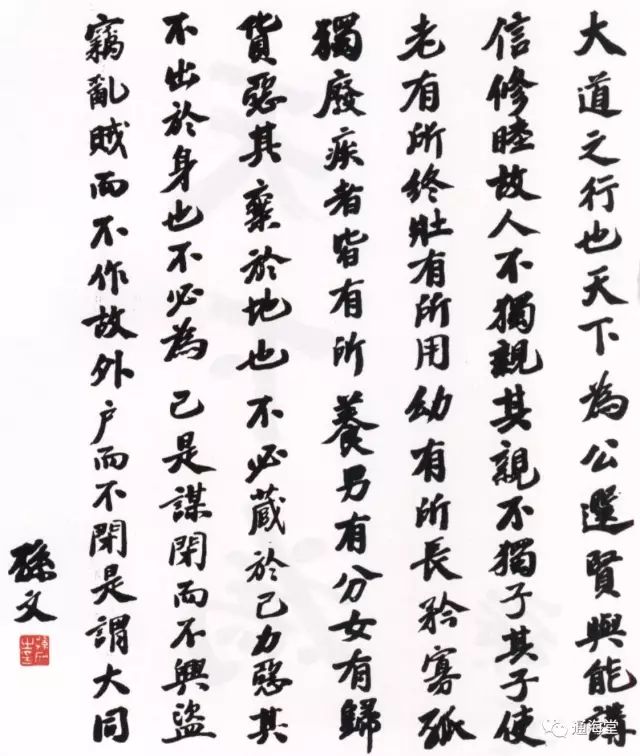 大道之行也天下為公選賢與能講
信修睦故人不獨親其親不獨子其子使
老有所終壯有所用幼有所長矜寡孤
獨廢疾者皆有所養男有分女有歸
貨惡其棄於地也不必藏於己力惡其
不出於身也不必為己是謀閉而不興盜
竊亂賊而不作故外户而不閉是謂大同
孫文
通海堂